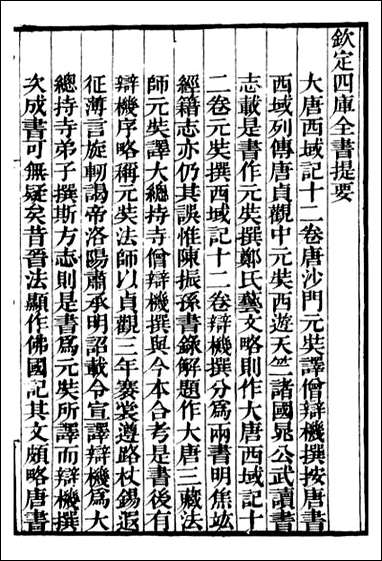 欽定四庫全書提要
大唐西域記十二卷唐沙門元奘譯僧辯機撰按唐書
西域列傳唐貞觀中元奘西遊天竺諸國晁公武讀書
志載是書作元奘撰鄭氏藝文略則作大唐西域記十
二卷元奘撰西域記十二卷辯機撰分爲兩書明焦竑
經籍志亦仍其誤惟陳振孫書錄解題作大唐三藏法
師元奘譯大總持寺僧辯機撰與今本合考是書後有
辯機序略稱元奘法師以貞觀三年褰裳遵路杖錫遐
征薄言旋軔謁帝洛陽肅承明詔載令宣譯辯機爲大
總持寺弟子撰斯方志則是書爲元奘所譯而辯機撰
次成書可無疑矣昔晉法顯作佛國記其文頗略唐書